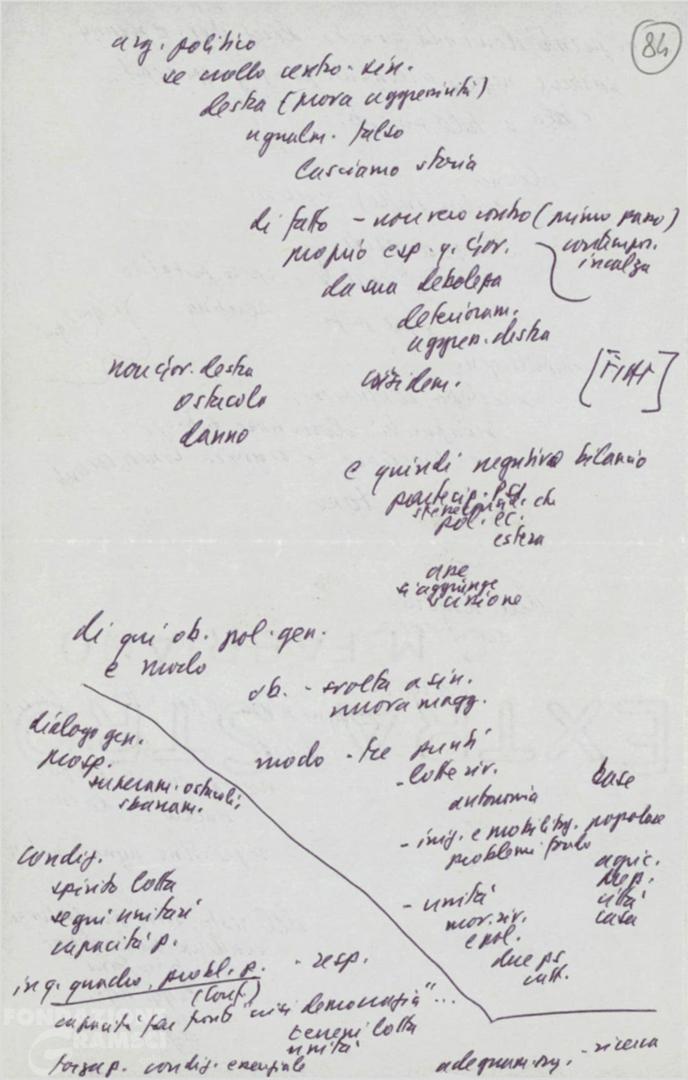 84
arg. politico
se crollo centro-sin.
destra (nuova aggressività)
ugualm. falso
lasciamo storia
di fatto - non vero centro (primo piano)
proprio esp. g. gov.
contempor.
incalza
da sua debolezza
deterioram.
aggress. destra
non gov. destra
ostacolo
danno
coincidem.
[FIAT]
e quindi negativo bilancio
partecip. PSI
che
pol. ec.
estera
ope
si aggiunge
scissione
di qui ob. pol. gen.
e modo
ob. - svolta a sin.
nuova magg.
dialogo gen.
prosp.
superam. ostacoli
sbanam.
modo - tre punti
- lotte riv.
autonomia
base
- iniz. e mobilitaz. popolare
problemi
agric.
città
casa
- unità
e pol.
due ps.
catt.
condiz.
spirito lotta
segni unitari
capacità p.
in q. quadro, probl. p. - resp.
(Conf.)
capacità far fronte "crisi democrazia"...
terreni lotta
unità
forza p. condiz. essenziale
adeguam. - ricerca
FONDAZIONE
GRAMSCI